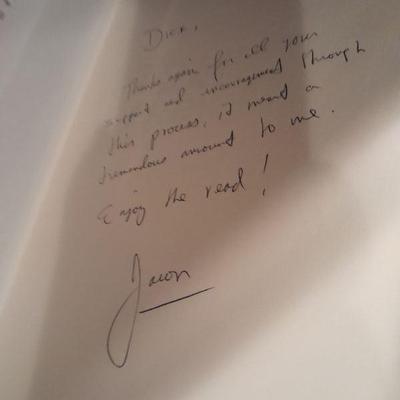 Dick,
Thanks again for all your
support and encouragement through
this process, it meant a
tremendous amount to me.
Enjoy the read!
Jason